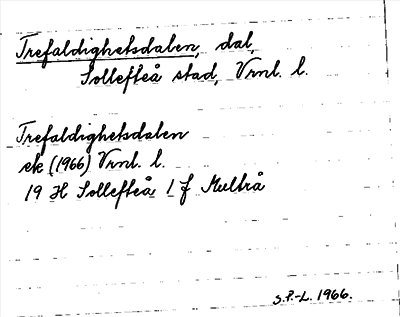 Trefaldighetsdalen, dal,
Sollefteå stad, Vrnl. l.
Trefaldighetsdalen
ek (1966) Vrnl. l.
19 H Sollefteå 1 f Multrå
S.P.-L. 1966.